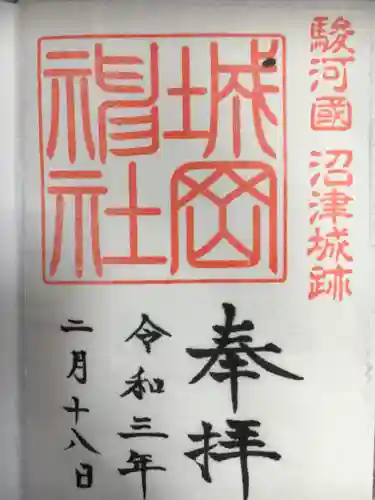 駿河國 沼津城跡
城岡
神社
奉拝
令和三年
二月十八日